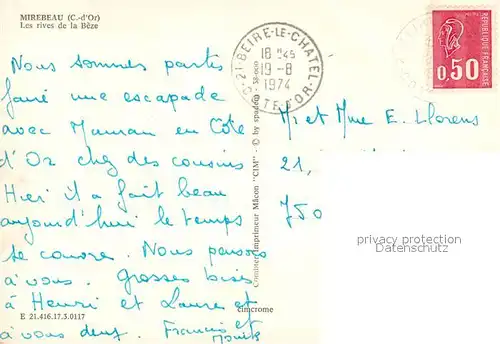 MIREBEAU (C.-d'Or)
Les rives de la Bèze
Nous sommes partis
faire une escapade
avec Maman en Côte
d'Or chez des cousins
Hier il a fait beau
aujourd'hui le temps
se couvre. Nous pensons
à vous. Grosses bises
à Henri et Laure et
à vous deux. Francis et
E 21.416.17.3.0117
cimcrome
Combier Imprimeur Mâcon "CIM" - © by spadem
21 BEIRE-LE-CHATEL
18 H45
19-8
1974
CÔTE D'OR
REPUBLIQUE FRANÇAISE
0,50
Mr et Mme E. Llorens
21,
750
privacy protection
Datenschutz